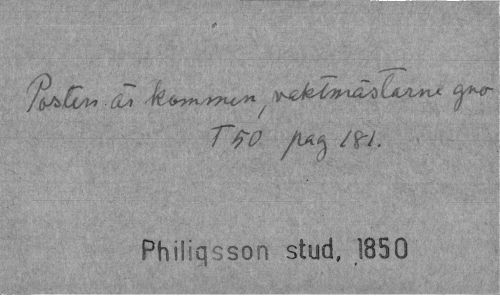 Posten är kommen, vaktmästarne gno
T 50 pag 181.
Philiqsson stud, 1850